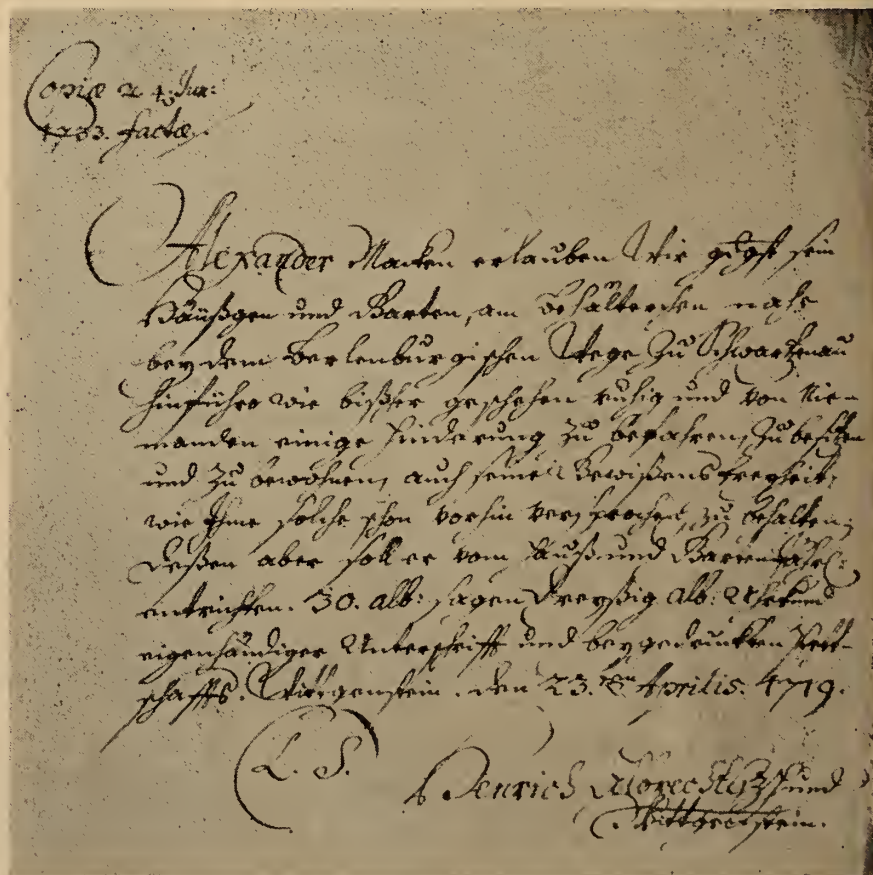 Copiæ d. 4. Jun:
1733. factæ.
Alexander Macken erlauben Wir gdgst sein
Häußgen und Garten, am Behälterchen nahe
bey dem Berlenburgischen Wege zu Schwartzenau
hinführo wie bißher geschehen ruhig und von Nie-
manden einige Hinderung zu befahren, zu besitzen
und zu bewohnen, auch seine Gewißens freyheit,
wie Ihme solche schon vorhin versprochen, zu behalten;
Deßen aber soll er vom Hauß und Garten jährl:
entrichten. 30. alb: sagen Dreyßig alb: Uhrkund
eigenhändiger Unterschrifft und beygedruckten Pett-
schaffts. Wittgenstein. den 23.ten Aprilis. 1719.
L. S.
Henrich Albrecht und
Wittgenstein.